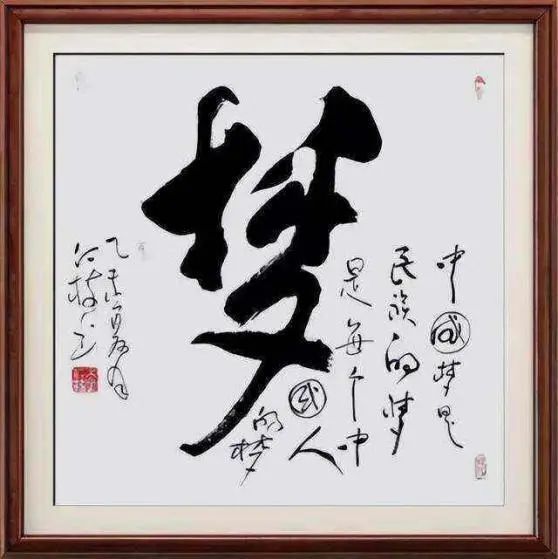 梦
中国梦是
民族的梦
是每个中
国人
的梦
乙未夏月